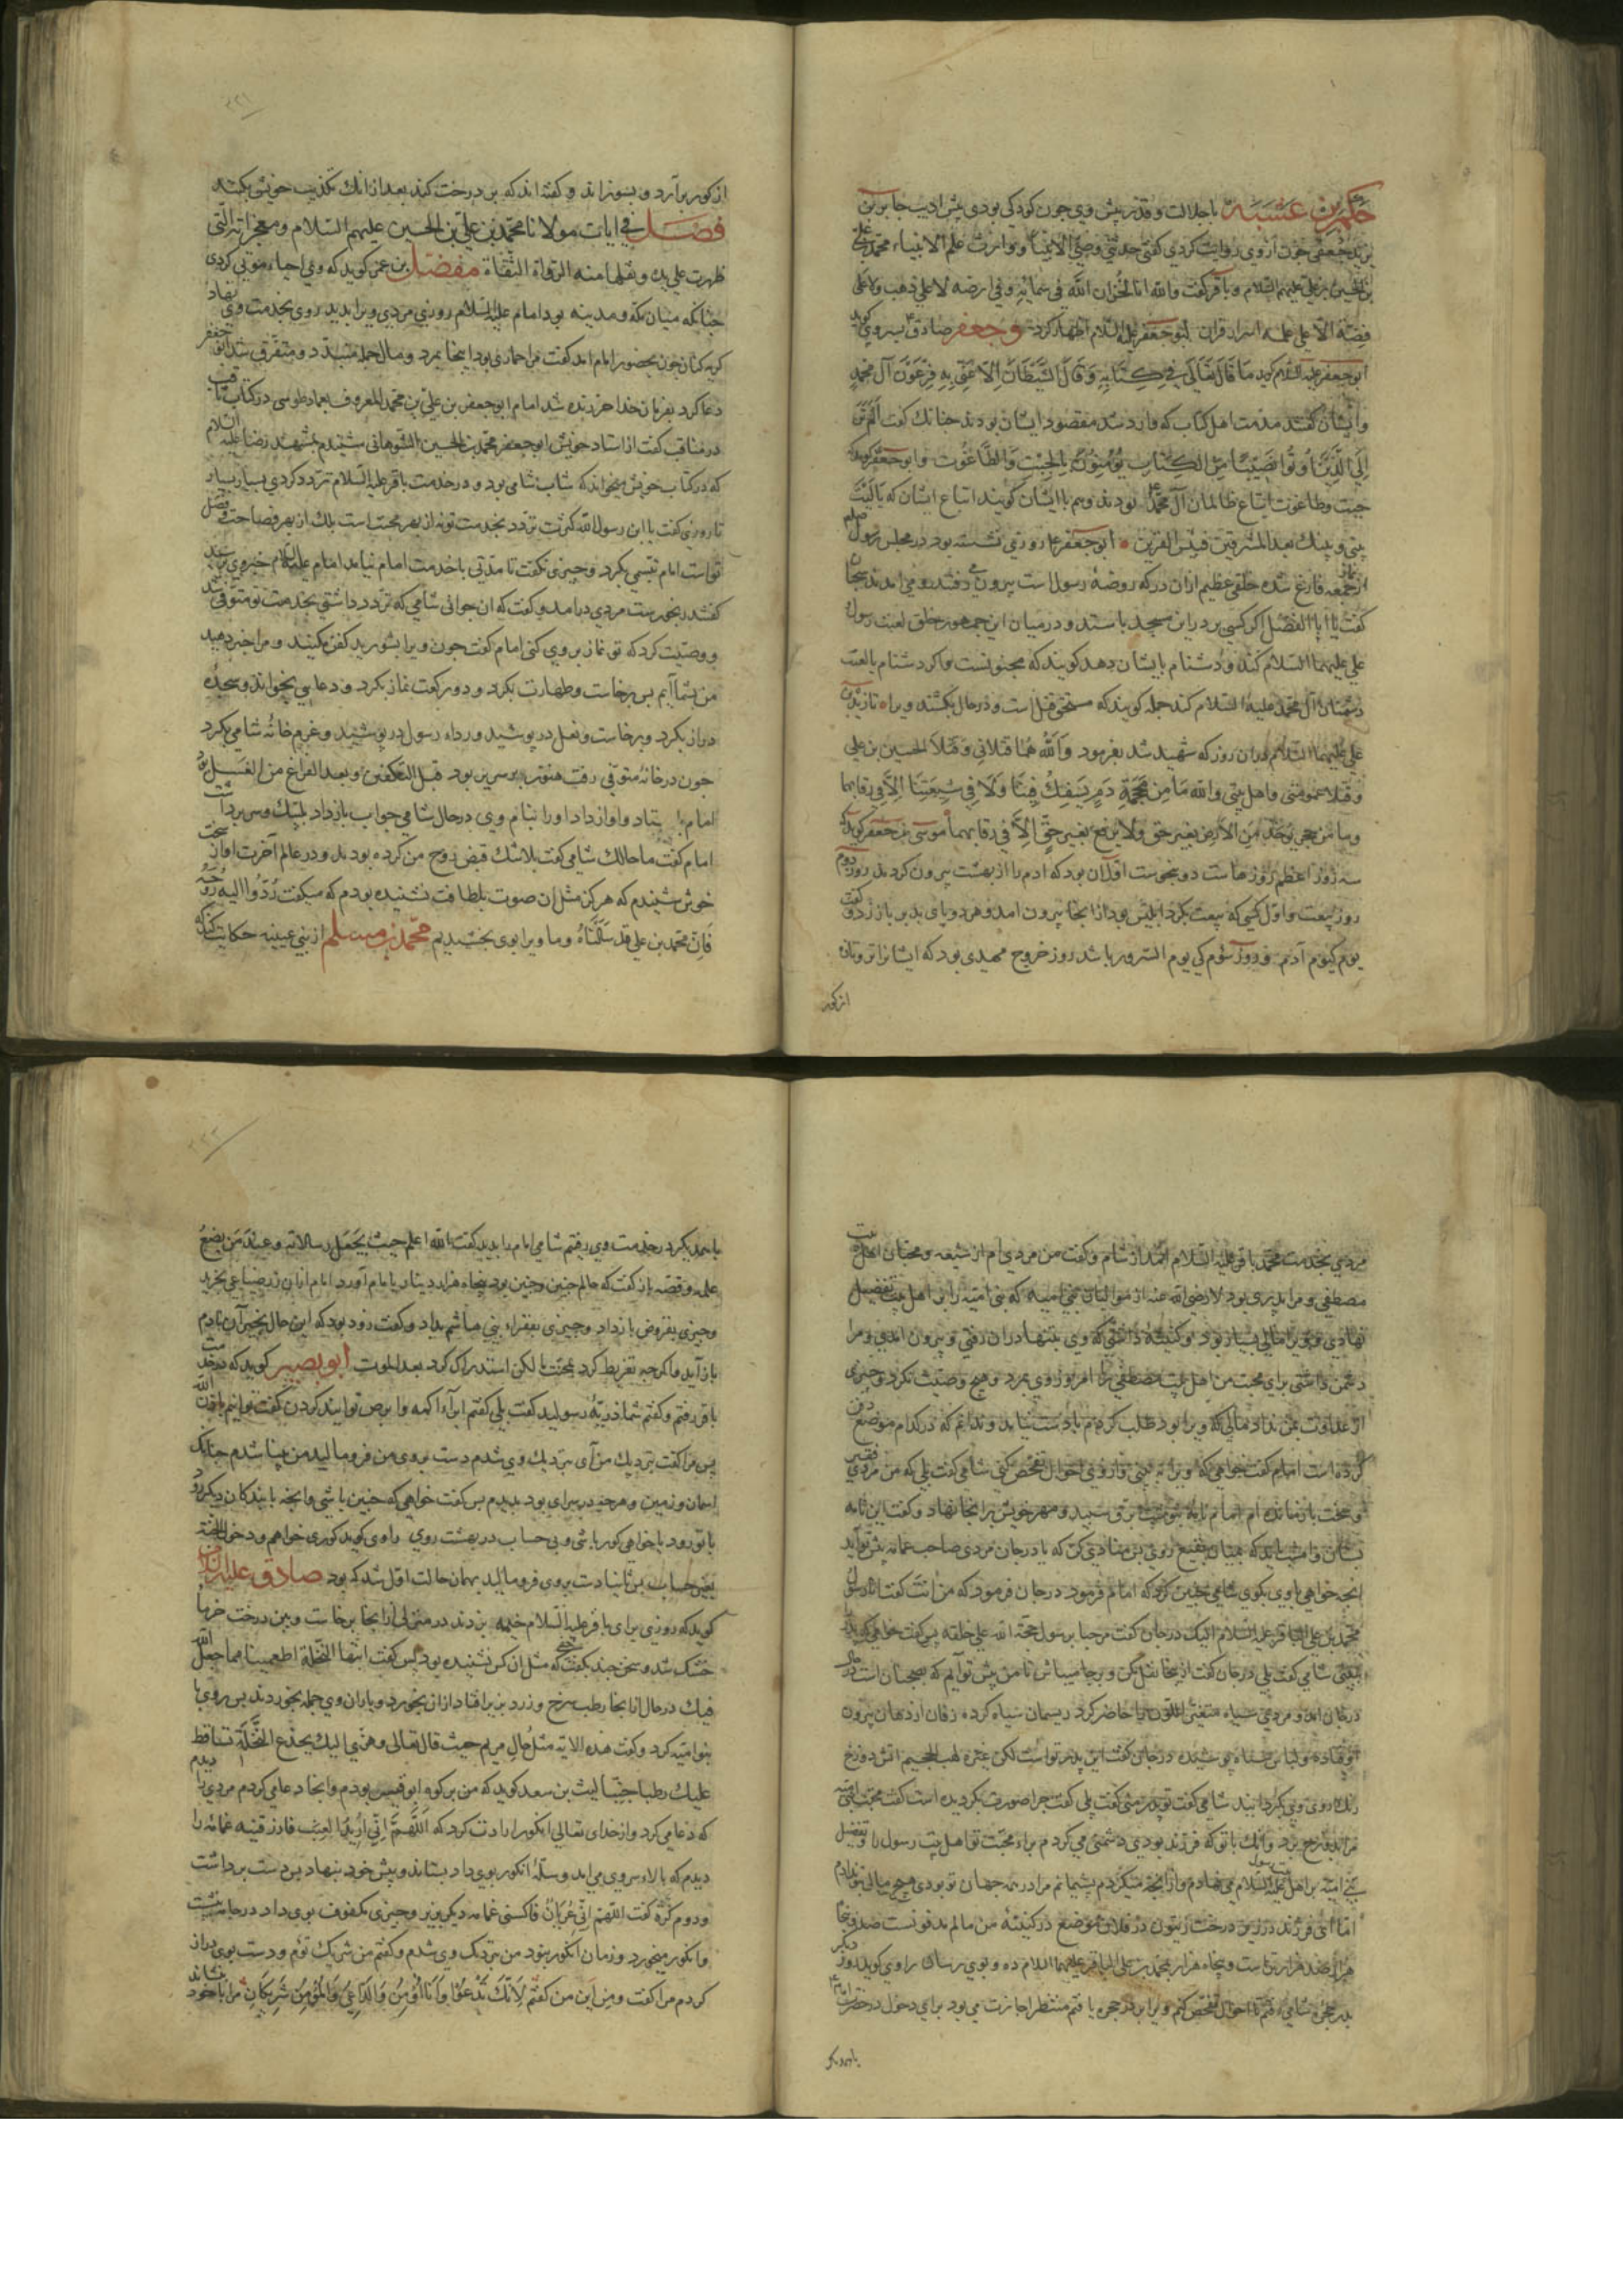 حکم بن عتیبه با جلالت و قدرش پیش وی چون کودکی بودی پیش ادیب جابر بن
یزید جعفی چون از وی روایت کردی گفتی حدثنی وصی الاوصیاء و وارث علم الانبیاء محمد بن علی
بن الحسین بن علی علیهم السلام و باقر گفت والله انا لخزان الله فی سمائه و فی ارضه لا علی ذهب ولا علی
فضة الا علی علمه اسرار قران ابو جعفر علیه السلام اظهار کرد و جعفر صادق
ابو جعفر علیه السلام کوید ما قال تعالی فی کتابه وقال الشیطان الا عنی به فرعون آل محمد
مذمت اهل کتاب که وارد شد مقصود ایشان بودند چنانک گفت الم تر
الی الذین اوتوا نصیبا من الکتاب یؤمنون بالجبت والطاغوت وابو جعفر کوید
جبت وطاغوت اتباع ظالمان آل محمد بودند وهم با ایشان کویند اتباع ایشان که یا لیت
بینی وبینک بعد المشرقین فبئس القرین ابو جعفر روزی نشسته بود در مجلس رسول صلعم
از نماز جمعه فارغ شده خلقی عظیم ازان در که روضه رسول است بیرون می رفتند و می امدند
گفت یا ابا الفضل اکر کسی بر در این مسجد باستد و در میان این جمهور خلق لعنت رسول
علی علیهما السلام کند و دشنام بایشان دهد کویند که مجنونست واکر دشنام یا لعنت
دشمنان آل محمد علیه السلام کند جمله کویند که مستحق قتل است و در حال بکشند ویرا
علی علیهما السلام دران روز که شهید شد بفرمود والله هما قتلانی وقتلا الحسین بن علی
وقتلا عمومتی واهل بیتی والله ما من محجمة دم یسفک فینا ولا فی شیعتنا الا فی رقابهما
وما من حجر یؤخذ من الارض بغیر حق ولا بغیر حق الا فی رقابهما موسی بن جعفر کوید که
سه روز اعظم روزهاست در نحوست اول آن بود که ادم را از بهشت بیرون کردند روز دوم
روز بیعت و اول کسی که بیعت بکرد ابلیس بود از انجا بیرون امد و هر دو پای بدر باز زد و گفت
یوم کیوم آدم و روز سوم کی یوم السرور باشد روز خروج مهدی بود که ایشانرا
از کور
از کور بر آرد و بسوزاند و گفته اند که بر درخت کند بعد از انک تکذیب خویش بکنند
فصل فی ایات مولانا محمد بن علی بن الحسین علیهم السلام ومعجزاته التی
ظهرت علی یده ونقلها منه الرواة الثقاة مفضل بن عمر کوید که وی احیاء موتی کردی
چنانکه میان مکه و مدینه بود امام علیه السلام روزی مردی ویرا بدید روی بخدمت وی نهاد
کریه کنان چون بحضور امام امد گفت مرا حماری بود اینجا بمرد و مال جمله متبدد و متفرق شد ابو جعفر
دعا کرد بفرمان خدا خر زنده شد امام ابو جعفر بن علی بن محمد المعروف بعماد طوسی در کتاب ثاقب
در مناقب گفت از استاد خویش ابو جعفر محمد بن الحسین الشوهانی شنیدم بمشهد رضا علیه السلام
که در کتاب خویش میخواند که شاب شامی بود و در خدمت باقر علیه السلام تردد کردی بسیار بسیار
تا روزی گفت یا ابن رسول الله کثرت تردد بخدمت تو نه از بهر محبت است بلک از بهر فصاحت و فضل
تو است امام تبسمی بکرد و چیزی نگفت تا مدتی با خدمت امام نیامد امام علیه السلام خبر وی پرسید
گفتند رنجورست مردی درامد و گفت که ان جوانی شامی که تردد داشتی بخدمت تو متوفی شد
و وصیت کرد که تو نماز بر وی کنی امام گفت چون ویرا بشورید کفن مکنید و مرا خبر دهید
من بشما آیم بس برخاست و طهارت بکرد و دو رکعت نماز بکرد و دعایی بخواند و سجدهٔ
دراز بکرد و برخاست و نعل در پوشید و رداء رسول در پوشید و عزم خانهٔ شامی بکرد
چون در خانهٔ متوفی رفت هنوز بر سریر بود قبل التکفین و بعد الفراغ من الغسل بود
امام باستاد و اواز داد او را بنام وی در حال شامی جواب باز داد بلبیک و سر برداشت
امام گفت ما حالک شامی گفت بلاشک قبض روح من کرده بودند و در عالم آخرت اواز سخت
خوش شنیدم که هرکز مثل ان صوت بلطافت نشنیده بودم که میگفت ردوا الیه روحه
فان محمد بن علی قد سألناه وما ویرا بوی بخشیدیم محمد بن مسلم از بنی عیینه حکایت کند که
مردی بخدمت محمد باقر علیه السلام امد از شام و گفت من مردی ام از شیعه و محبان اهل بیت
مصطفی و مرا پدری بود لا رضی الله عنه از موالیان بنی امیه که بنی امیه را بر اهل بیت تفضیل
نهادی و ویرا مالی بسیار بود و کنیتهٔ داشتی که وی بتنها دران رفتی و بیرون امدی و مرا
دشمن داشتی برای محبت من اهل بیت مصطفی را امروز وی بمرد و هیچ وصیت نکرد و چیزی
از عداوت بمن نداد مالی که ویرا بود طلب کردم با دست نیامد و ندانم که در کدام موضع دفن
کرده است امام گفت خواهی که ویرا ببینی و از وی احوال تفحص کنی شامی گفت بلی که من مردی فقیر
و سخت بازمانده ام امام نامهٔ بنوشت بر ق سپید و مهر خویش برانجا نهاد و گفت این نامه
بستان و امشب که بمیان بقیع روی منادی کن که یا درجان مردی صاحب عمامه پیش تو آید
انچه خواهی باوی بکوی شامی چنین کرد که امام فرمود درجان فرمود که من انت گفت انا رسول
محمد بن علی الباقر علیه السلام الیک درجان گفت مرحبا برسول حجة الله علی خلقه پس گفت خواهی که پدر
ببینی شامی گفت بلی درجان گفت از اینجا نقل مکن و برجا میباش تا من پیش تو آیم که بضجنان است در حال
درجان امد و مردی سیاه متغیر اللون را حاضر کرد ریسمان سیاه کرده زفان از دهان بیرون
اوفتاده و لباس سیاه پوشیده درجان گفت این پدر تو است لکن غیره لهب الجحیم اتش دوزخ
رنک روی وی بکردانید شامی گفت تو پدر منی گفت بلی گفت چرا صورت بگردیده است گفت محبت بنی امیه
مرا بدوزخ برد و انک با تو که فرزند بودی دشمنی می کردم براء محبت تو اهل بیت رسول را و تفضل
بنی امیه بر اهل بیت رسول علیه السلام می نهادم و از انچه میکردم پشیمانم مرا در همه جهان تو بودی هیچ مالی بتو ندادم
اما ای فرزند در زیر درخت زیتون در فلان موضع در کنیتهٔ من مالم مدفونست صد و پنجاه
هزار صد هزار تراست و پنجاه هزار بمحمد بن علی الباقر علیهما السلام ده و بوی رسان راوی کوید روز دیگر
بدر حجرهٔ شامی رفتم تا احوال تفحص کنم ویرا بر در حجره یافتم منتظر اجازت می بود برای دخول در حضرت امام
بامداد
بامداد بکرد در خدمت وی رفتم شامی امام را بدید گفت الله اعلم حیث یجعل رسالاته وعند من یضع
علمه و قصه باز گفت که حالم چنین و چنین بود پنجاه هزار دینار با امام آورد امام ازان زر ضیاعی بخرید
و چیزی بقروض باز داد و چیزی بفقراء بنی هاشم بداد و گفت زود بود که این حال بخیر آن نادم
باز آید و اگرچه تفریط کرد بمحبت ما لکن استدراک کرد بعد الموت ابو بصیر کوید که در خدمت
باقر رفتم و گفتم شما ذریهٔ رسولید گفت بلی گفتم ابراء اکمه و ابرص توانید کردن گفت توانیم باذن الله
پس مرا گفت نزدیک من آی نزدیک وی شدم دست بروی من فرو مالید من بینا شدم چنانک
اسمان و زمین و هرچه در سرای بود بدیدم پس گفت خواهی که چنین باشی و انچه با بندکان دیکر رود
با تو رود یا خواهی کور باشی و بی حساب در بهشت روی راوی کوید کوری خواهم و دخول الجنة
بغیر حساب پس دست بروی فرو مالید بهمان حالت اول شد که بود صادق علیه السلام
کوید که روزی برای باقر علیه السلام خیمه بزدند در منزلی از انجا برخاست و بن درخت خرما
خشک شد و سخنی چند بگفت که مثل ان کس نشنیده بود پس گفت ایتها النخلة اطعمینا مما جعل الله
فیک در حال از انجا رطب سرخ و زرد بزیر افتاد ازان بخورد و یاران وی جمله بخوردند پس روی با
بنو امیه کرد و گفت هذه الایة مثل حال مریم حیث قال تعالی وهزی الیک بجذع النخلة تساقط
علیک رطبا جنیا لیث بن سعد کوید که من بر کوه ابو قبیس بودم و انجا دعا می کردم مردی را دیدم
که دعا می کرد و از خدای تعالی انکور ارادت کرد که اللهم انی ارید العنب فارزقنیه غمامه را
دیدم که بالاء سر وی می امد و سلهٔ انکور بوی داد بستاند و پیش خود بنهاد پس دست برداشت
و دوم کرة گفت اللهم انی عریان فاکسنی غمامه دیکر بزیر و چیزی مکفوف بوی داد در حال بنشست
و انکور میخورد و زمان انکور نبود من نزدیک وی شدم و گفتم من شریک توم و دست بوی دراز
کردم مرا گفت و من این من گفتم لانک تدعو وانا اؤمن والداعی والمؤمن شریکان مرا با خود نشاند